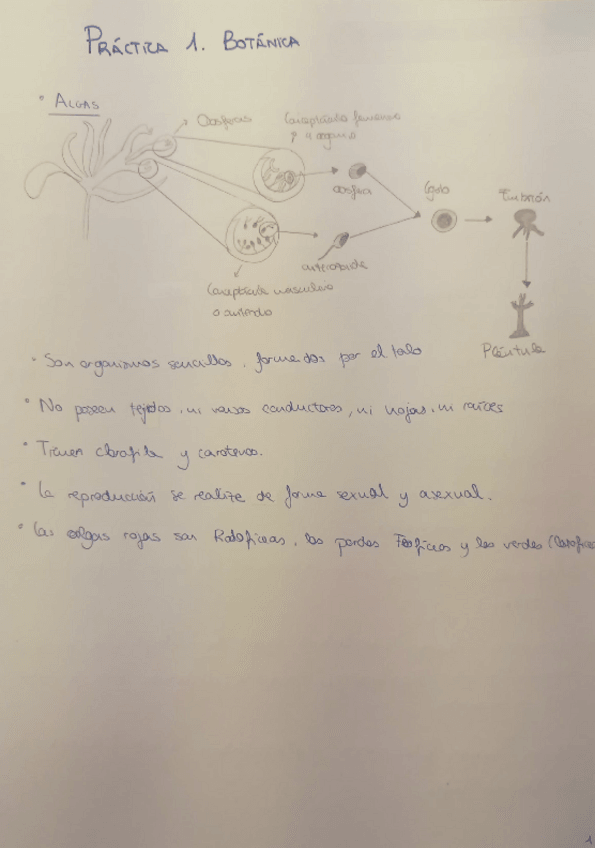 PRÁCTICA 1. BOTÁNICA
• ALGAS
Oosferas
Conceptáculo femenino
u oogonio
oosfera
Cigoto
Embrión
anterozoide
Conceptáculo masculino
o anteridio
Plántula
· Son organismos sencillos, formados por el talo
· No poseen tejidos, ni vasos conductores, ni hojas, ni raíces
· Tienen clorofila y carotenos.
· La reproducción se realiza de forma sexual y asexual.
· Las algas rojas son Rodofíceas, las pardas Feofíceas y las verdes
1